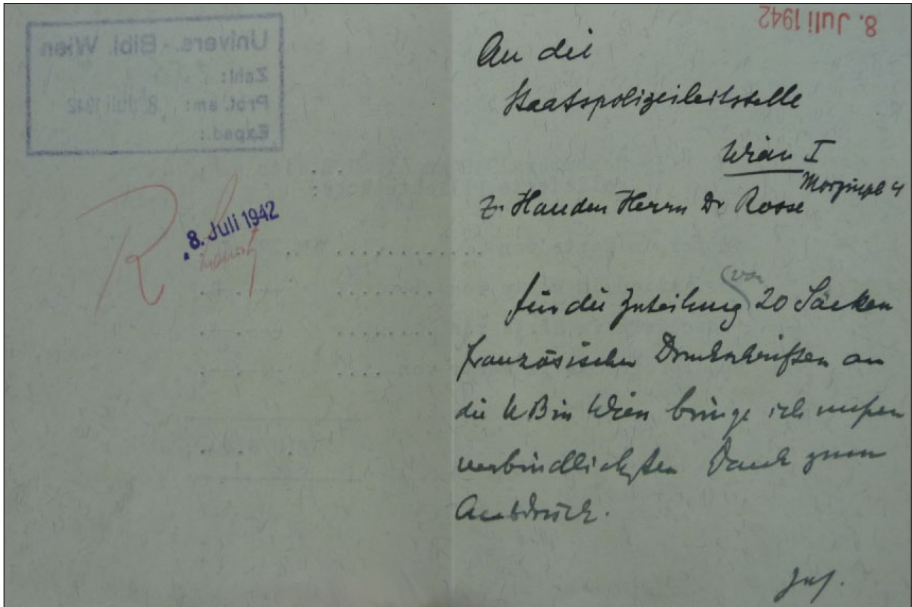 Univers.-Bibl. Wien
Zahl:
Prot. am: 8. Juli 1942
Exped.:
8. Juli 1942
8. Juli 1942
An die
Staatspolizeileitstelle
Wien I
Morzinpl 4
Z. Handen Herrn Dr Rosse
(von
für die Zuteilung 20 Säcken
französischer Druckschriften an
die UB in Wien bringe ich
verbindlichsten Dank zum
Ausdruck.